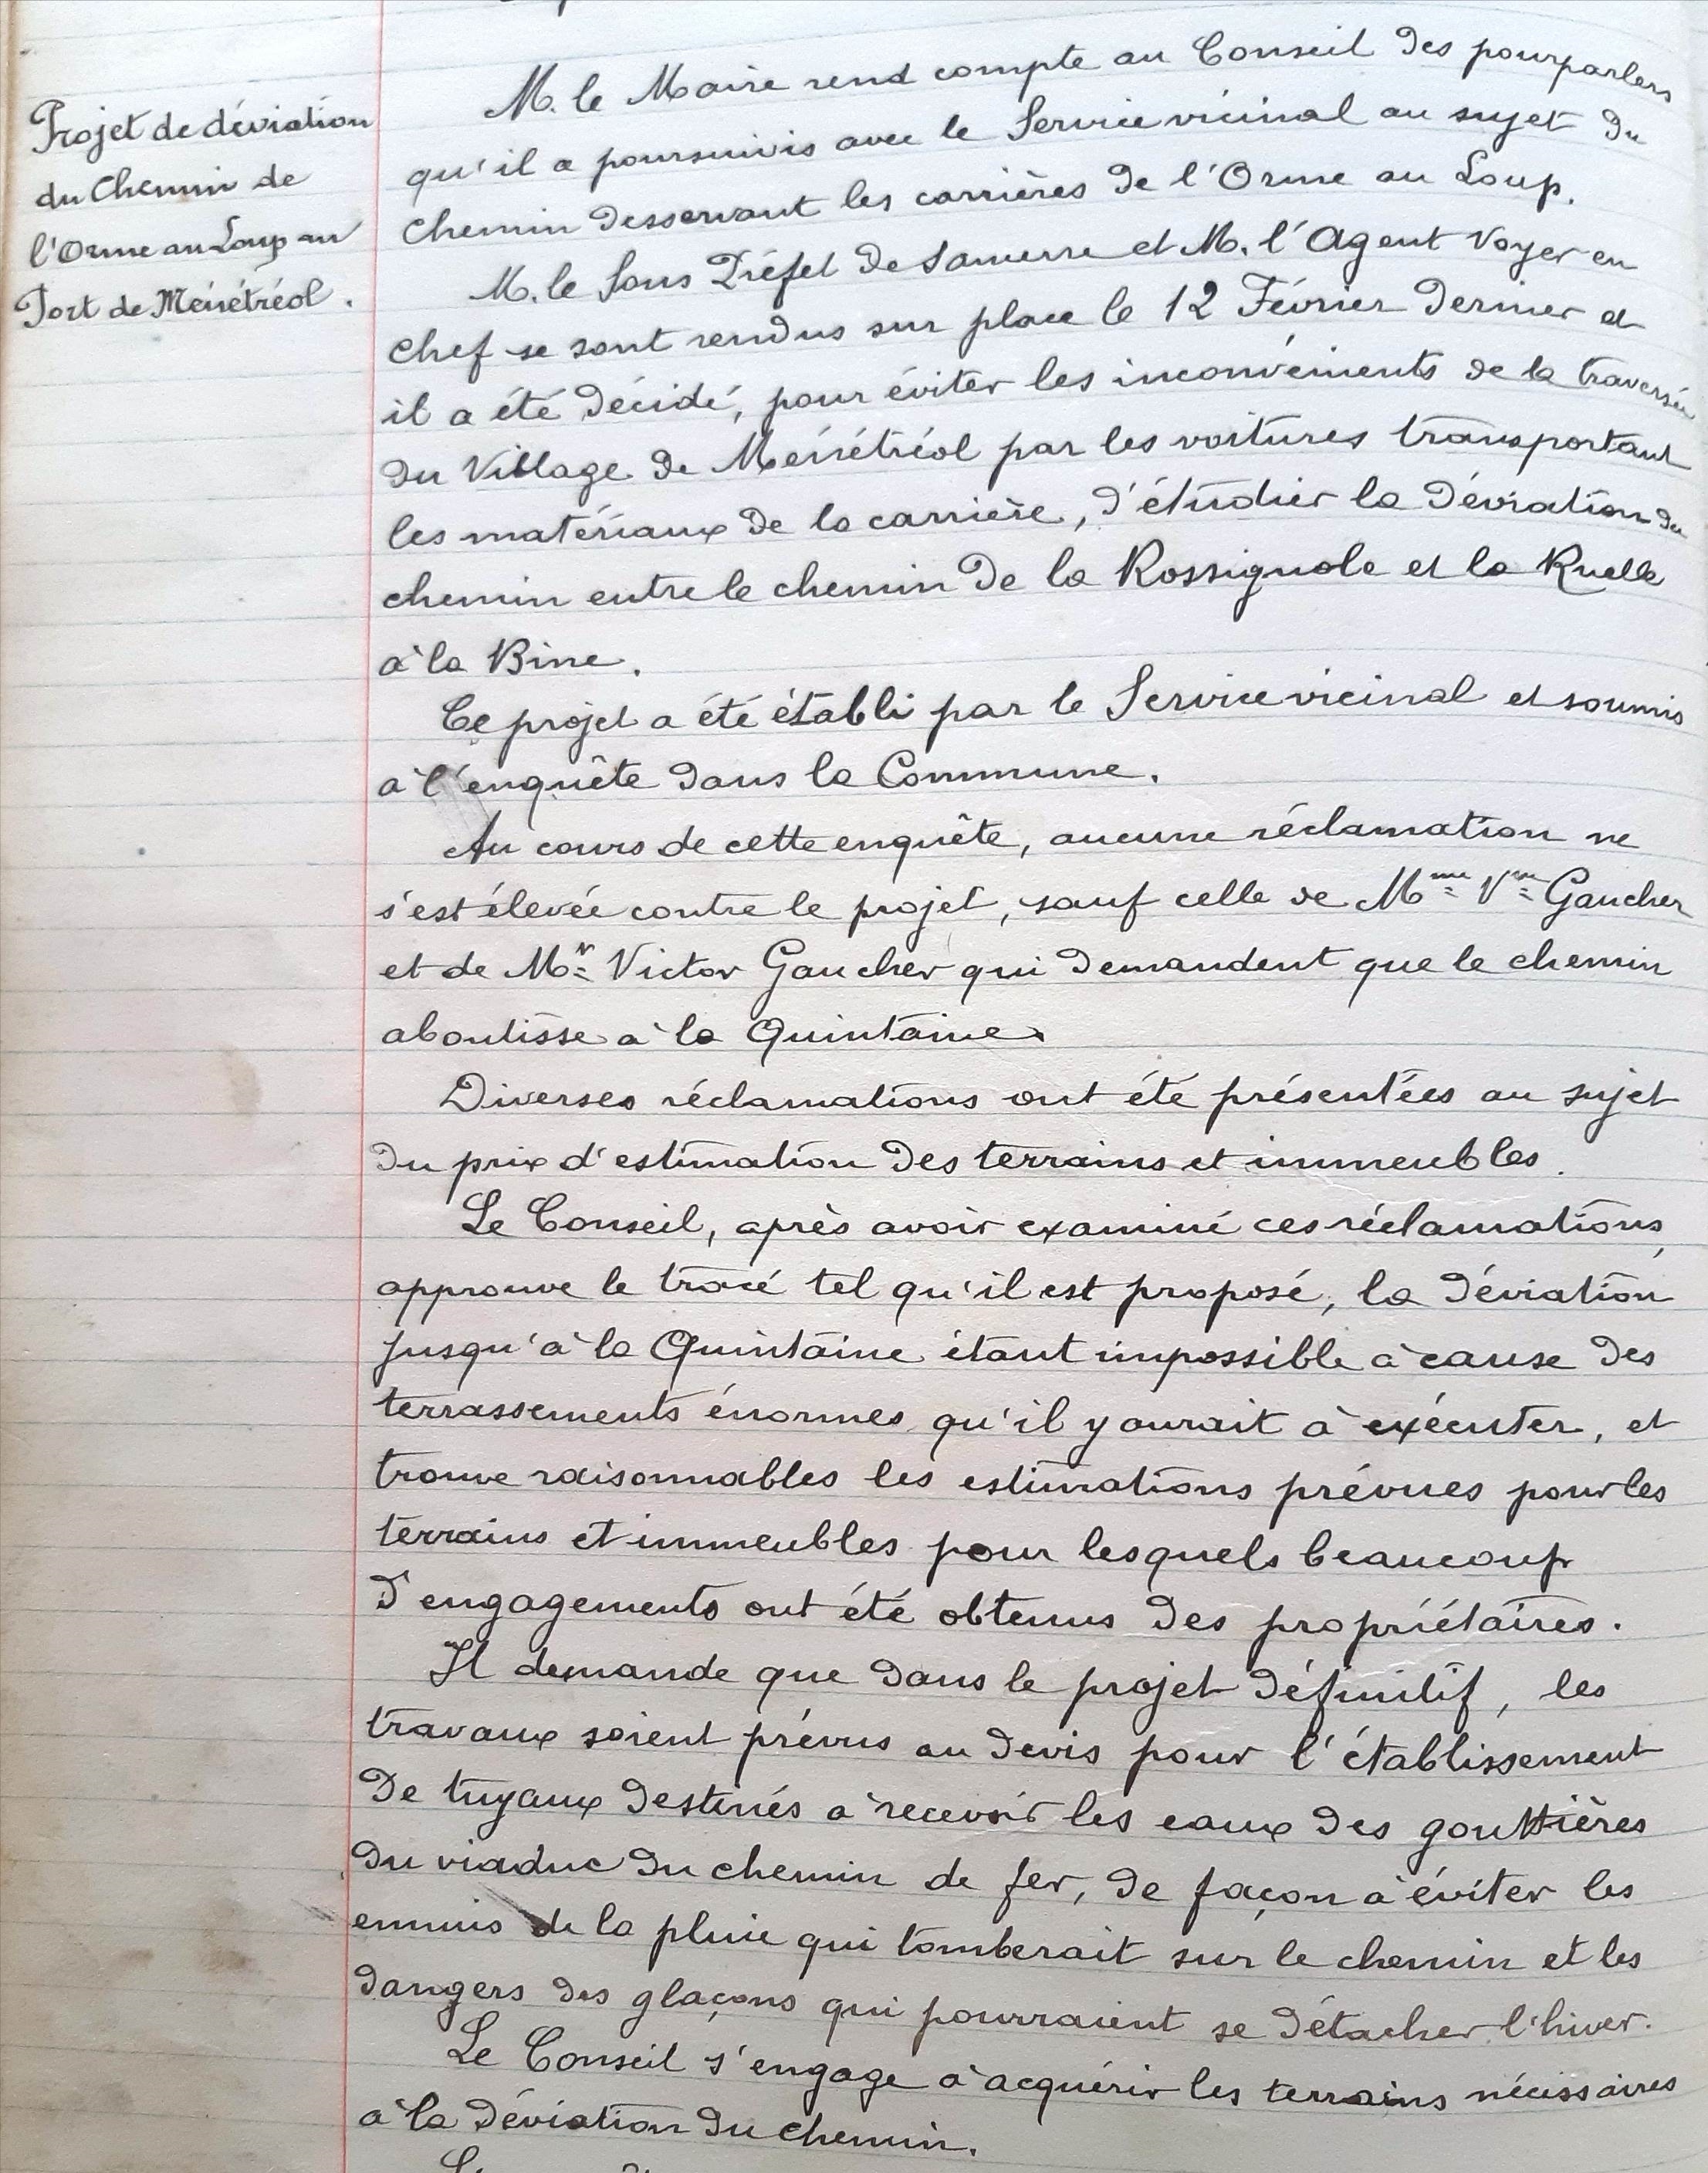 Projet de déviation
du Chemin de
l'Orme au Loup au
Port de Ménétréol.
M. le Maire rend compte au Conseil des pourparlers
qu'il a poursuivis avec le Service vicinal au sujet du
chemin desservant les carrières de l'Orme au Loup.
M. le Sous Préfet de Sancerre et M. l'Agent Voyer en
chef se sont rendus sur place le 12 Février dernier et
il a été décidé, pour éviter les inconvénients de la traversée
du Village de Ménétréol par les voitures transportant
les matériaux de la carrière, d'étudier la déviation du
chemin entre le chemin de la Rossignole et la Ruelle
à la Bine.
Ce projet a été établi par le Service vicinal et soumis
à l'enquête dans la Commune.
Au cours de cette enquête, aucune réclamation ne
s'est élevée contre le projet, sauf celle de Mme Vve Gaucher
et de Mr Victor Gaucher qui demandent que le chemin
aboutisse à la Quintaine.
Diverses réclamations ont été présentées au sujet
du prix d'estimation des terrains et immeubles.
Le Conseil, après avoir examiné ces réclamations,
approuve le tracé tel qu'il est proposé, la déviation
jusqu'à la Quintaine étant impossible à cause des
terrassements énormes qu'il y aurait à exécuter, et
trouve raisonnables les estimations prévues pour les
terrains et immeubles pour lesquels beaucoup
d'engagements ont été obtenus des propriétaires.
Il demande que dans le projet définitif, les
travaux soient prévus au devis pour l'établissement
de tuyaux destinés à recevoir les eaux des gouttières
du viaduc du chemin de fer, de façon à éviter les
ennuis de la pluie qui tomberait sur le chemin et les
dangers des glaçons qui pourraient se détacher l'hiver.
Le Conseil s'engage à acquérir les terrains nécessaires
à la déviation du chemin.